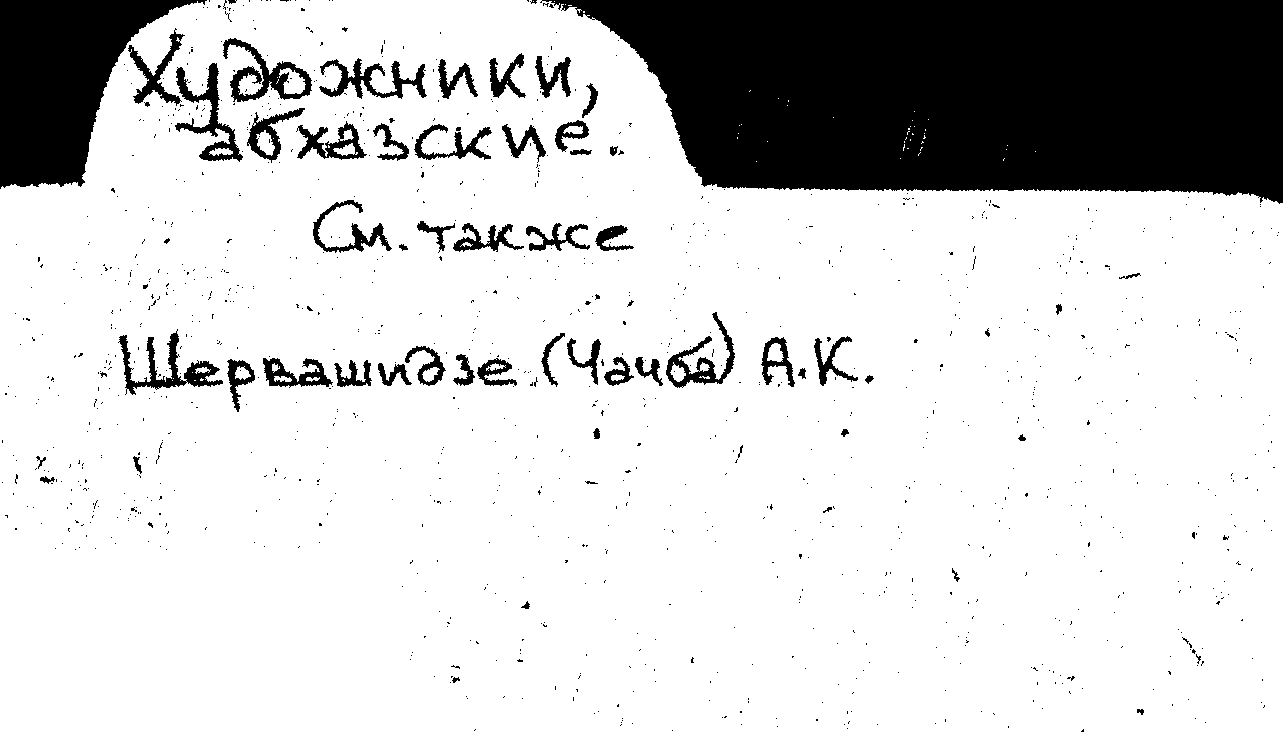 Художники,
абхазские.
См. также
Шервашидзе (Чачба) А.К.